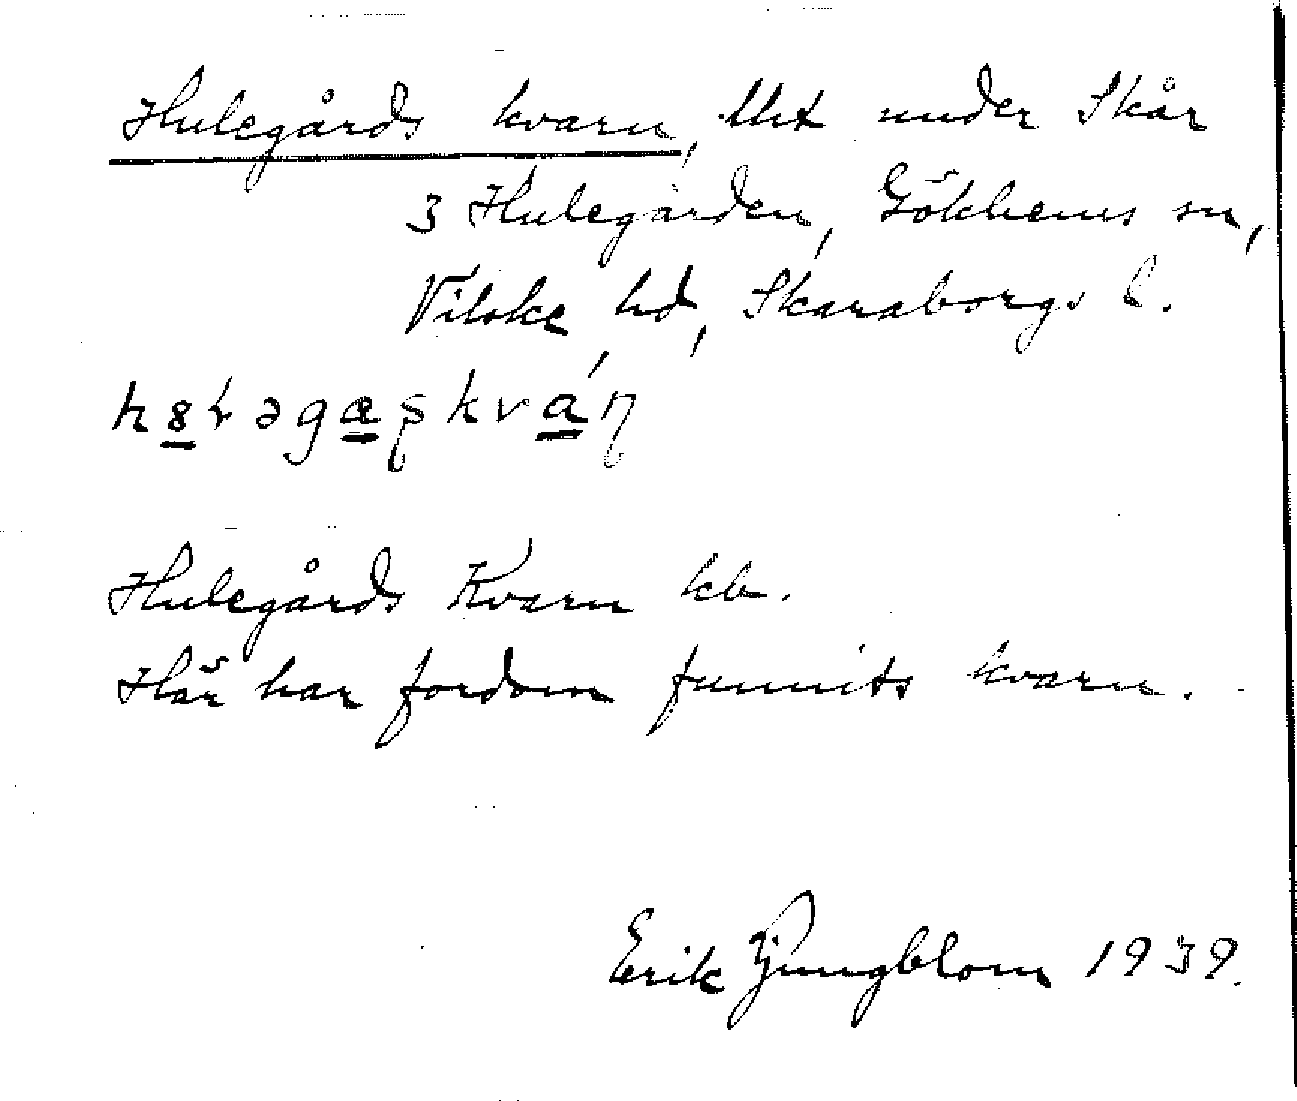 Hulegårds kvarn, Urt under Skår
3 Hulegården, Gökhems sn,
Vilske hd, Skaraborgs l.
Hulegårds Kvarn kb.
Här har fordom funnits kvarn.
Erik Ljungblom 1939.